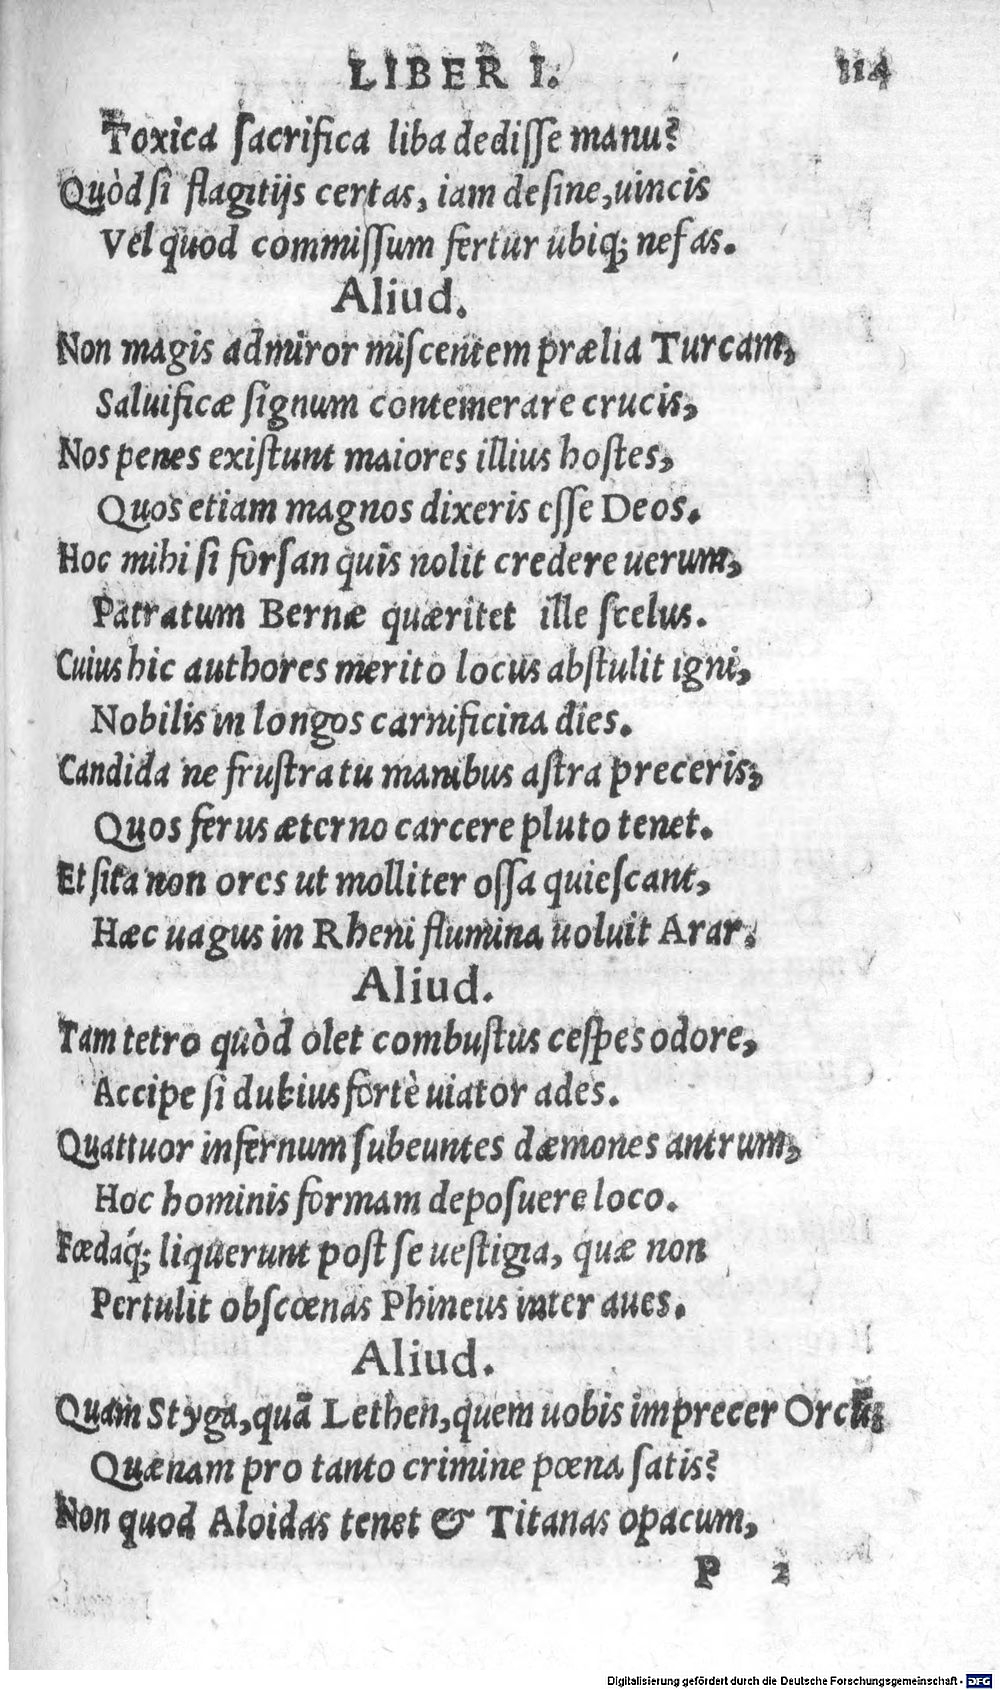 LIBER I. 114
Toxica ſacrifica liba dediſſe manu?
Quòd ſi flagitijs certas, iam deſine, uincis
Vel quod commiſſum fertur ubiq; nefas.
Aliud.
Non magis admiror miſcentem prælia Turcam,
Saluificæ ſignum contemerare crucis,
Nos penes exiſtunt maiores illius hoſtes,
Quos etiam magnos dixeris eſſe Deos.
Hoc mihi ſi forſan quis nolit credere uerum,
Patratum Bernæ quæritet ille ſcelus.
Cuius hic authores merito locus abſtulit igni,
Nobilis in longos carnificina dies.
Candida ne fruſtra tu manibus aſtra preceris,
Quos ferus æterno carcere pluto tenet.
Et ſita non ores ut molliter oſſa quieſcant,
Hæc uagus in Rheni flumina uoluit Arar.
Aliud.
Tam tetro quòd olet combuſtus ceſpes odore,
Accipe ſi dubius fortè uiator ades.
Quattuor infernum ſubeuntes dæmones antrum,
Hoc hominis formam depoſuere loco.
Fœdaq́; liquerunt poſt ſe ueſtigia, quæ non
Pertulit obſcœnas Phineus inter aues.
Aliud.
Quam Styga, quã Lethen, quem uobis imprecer Orcũ?
Quænam pro tanto crimine pœna ſatis?
Non quod Aloidas tenet & Titanas opacum,
P 2
Digitalisierung gefördert durch die Deutsche Forschungsgemeinschaft - DFG